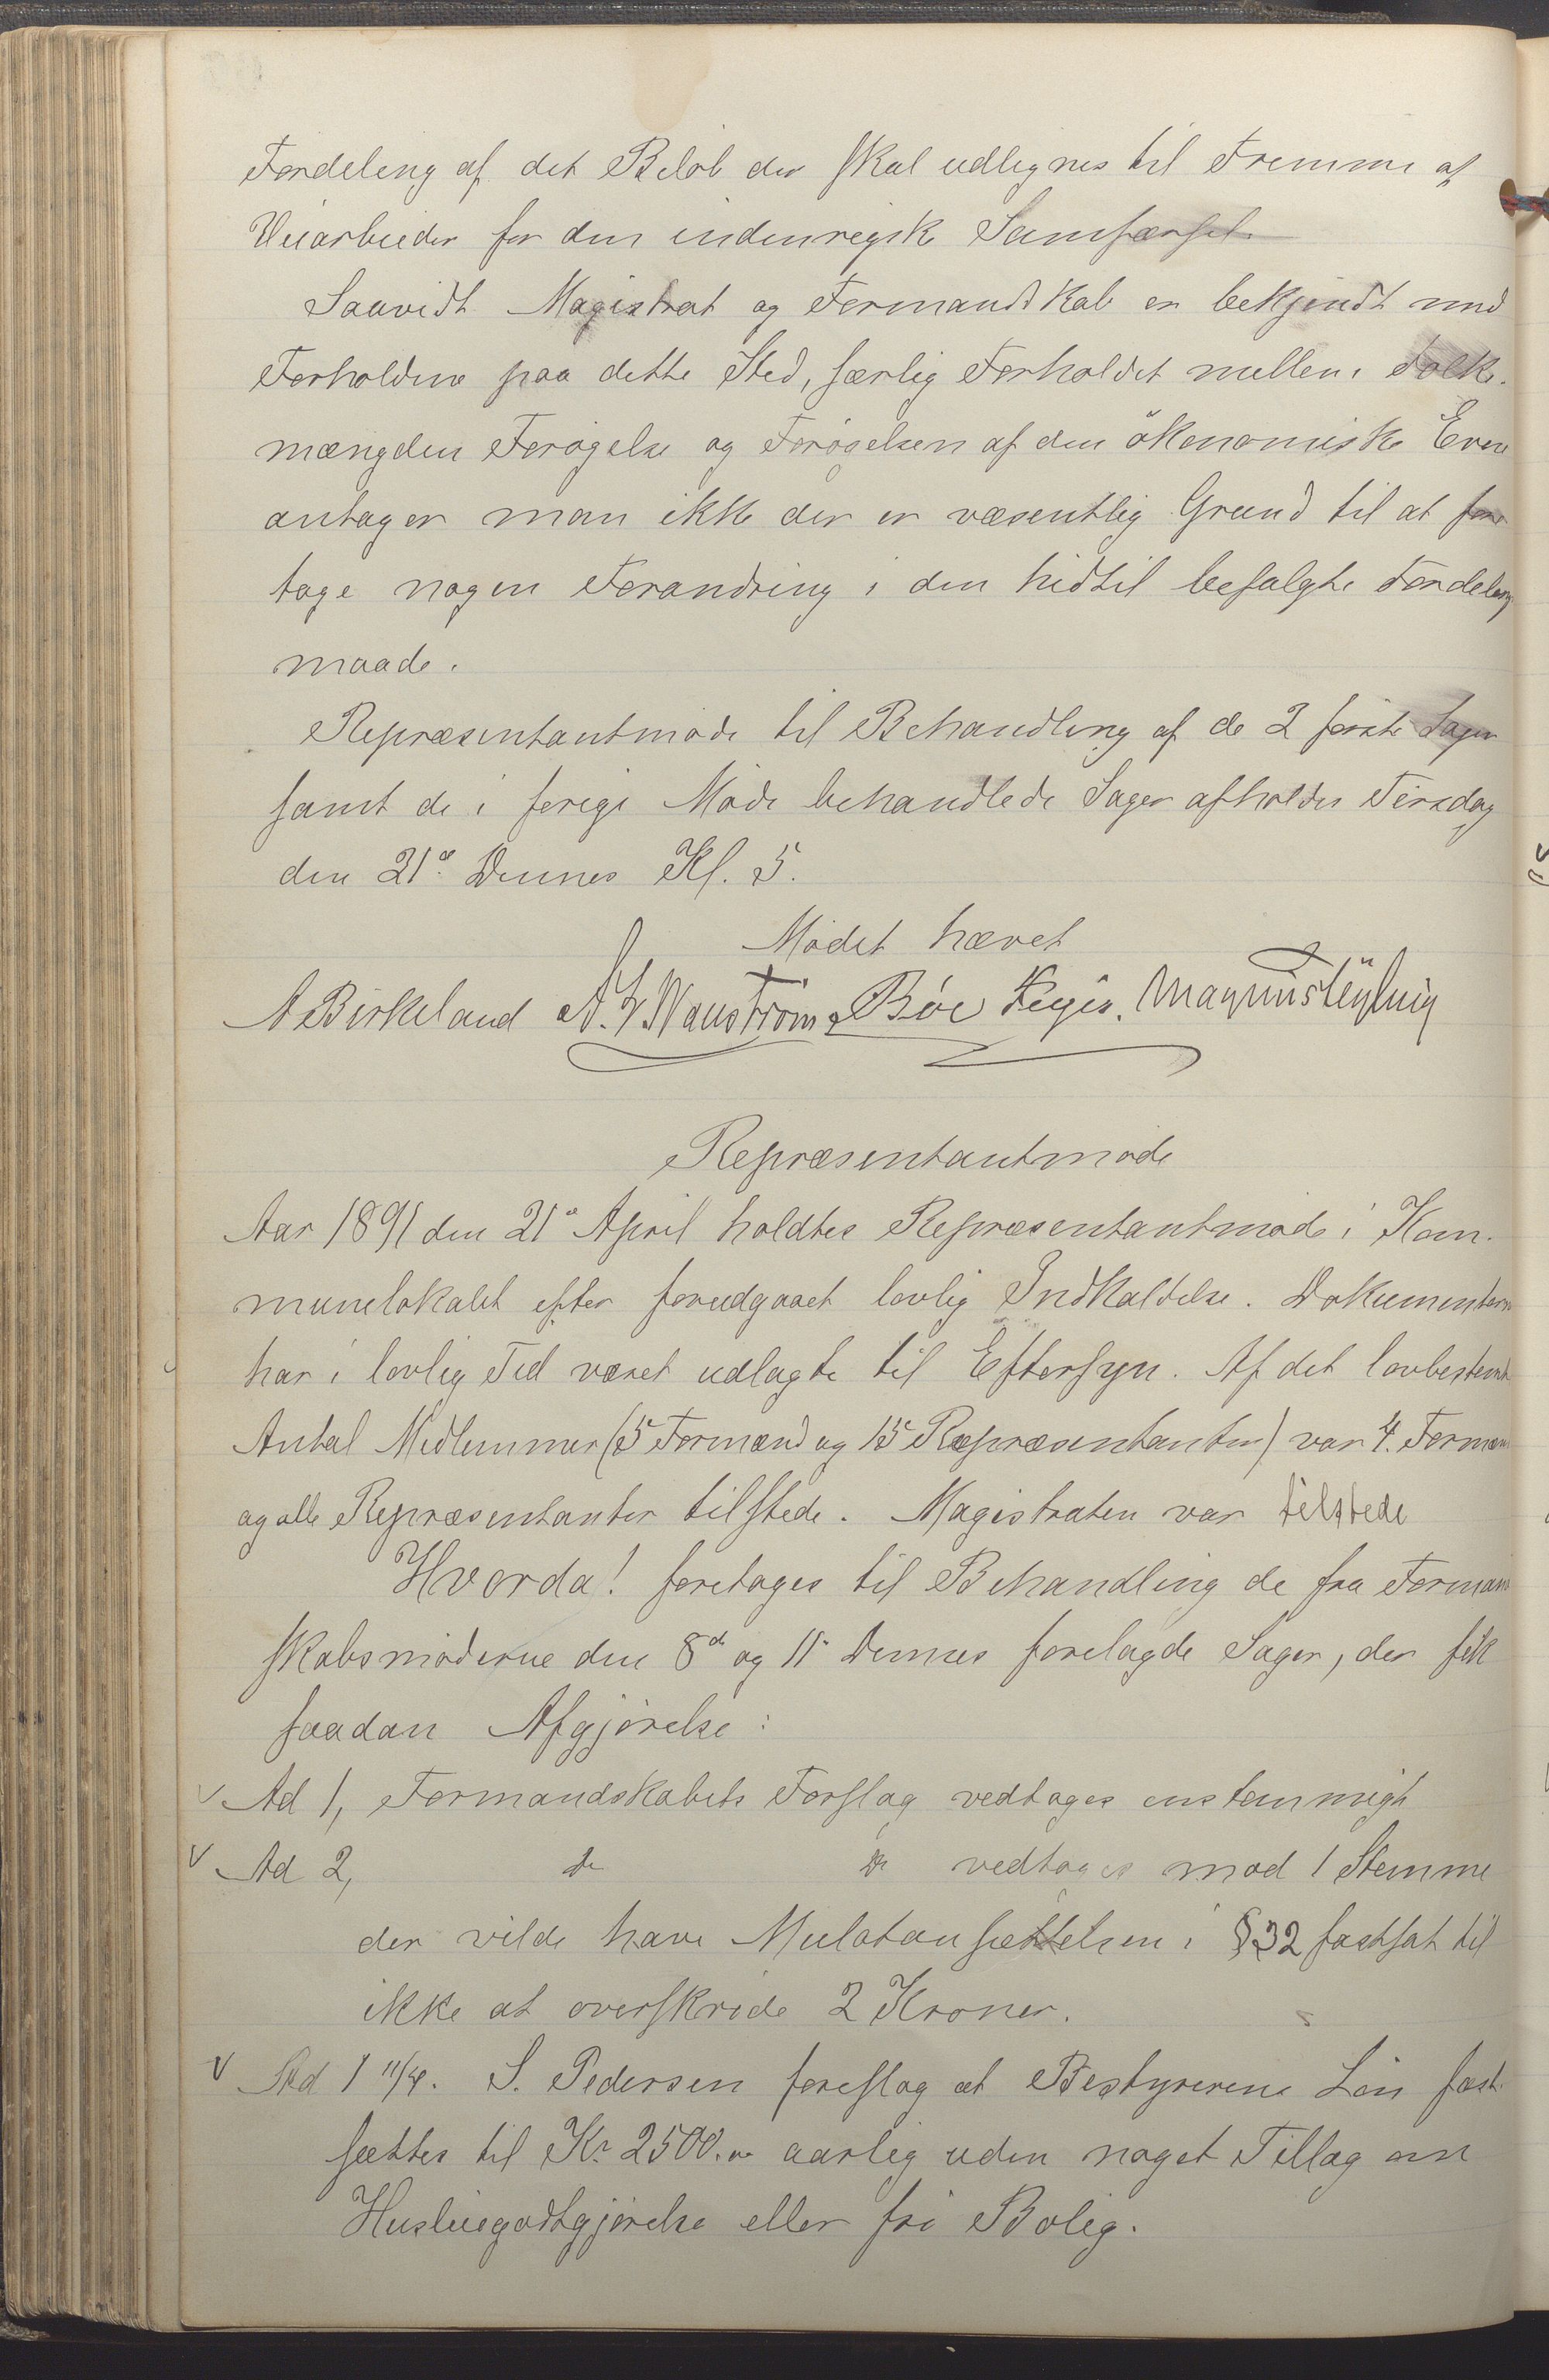 Fordeling af det Beløb der skal udlignes til Fremme af
Veiarbeider for den indenrigsk Samfærsel
Saavidt Magistrat og Formandskab er bekjendt med
Forholdene paa dette Sted, særlig Forholdet mellem Folke-
mængden Forøgelse og Forøgelsen af den økonomiske Evne
antager man ikke der er væsentlig Grund til at fore
tage nogen Forandring i den hidtil befulgte Fordelings
maade.
Repræsentantmøde til Behandling af de 2 første Sager
samt de i forige Møde behandlede Sager afholdes Tirsdag
den 21de Dennes Kl. 5.
Mødet hævet
A Birkeland Bøe
Repræsentantmøde
Aar 1891 den 21de April holdtes Repræsentantmøde i Kom-
munelokalet efter forudgaaet lovlig Indkaldelse. Dokumenterne
har i lovlig Tid været udlagte til Eftersyn. Af det lovbestemte
Antal Medlemmer (5 Formænd og 15 Repræsentanter) var 4. Formænd
og alle Repræsentanter tilstede. Magistraten var tilstede
Hvorda! foretages til Behandling de fra Formand
skabsmøderne den 8de og 11te Dennes forelagde Sager, der fik
saadan Afgjørelse:
v Ad 1, Formandskabets Forslag vedtages enstemmigt
v Ad 2, do do vedtages mod 1 Stemme
der vilde have Mulctansættelsen i § 32 fastsat til
ikke at overskride 2 Kroner.
v Ad 1 11/4. S. Pedersen foreslog at Bestyrerens Løn fast-
sættes til Kr. 2500.00 aarlig uden noget Tillæg om
Husleiegodtgjørelse eller fri Bolig.